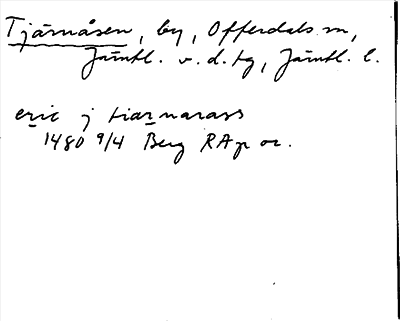 Tjärnåsen, by, Offerdals sn,
Jämtl. v. d. tg, Jämtl. l.
eric j tiarnarass
1480 9/4 Berg RAp or.